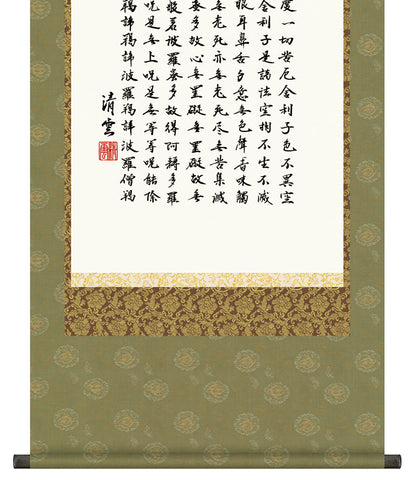 度一切苦厄舍利子色不異空
舍利子是諸法空相不生不滅
眼耳鼻舌身意無色聲香味觸
無老死亦無老死盡無苦集滅
多故心無罣礙無罣礙故無
般若波羅蜜多故得阿耨多羅
呪是無上呪是無等等呪能除
羯諦羯諦波羅羯諦波羅僧羯
清雲